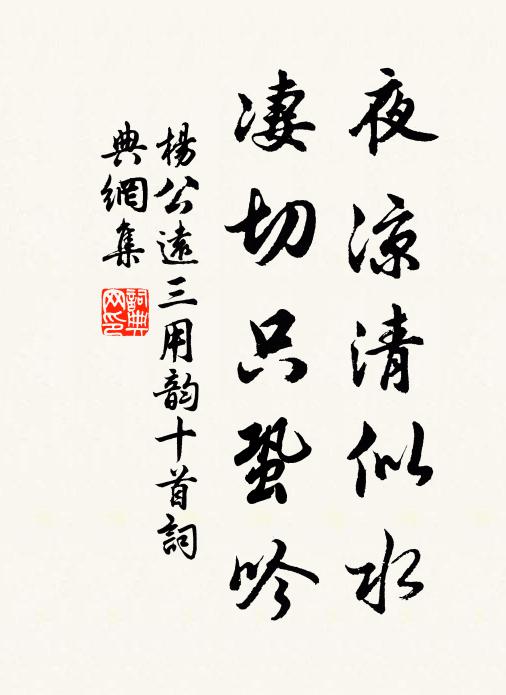 夜涼清似水
凄切只蛩吟
楊公遠三用韵十首詞
典網集
詞典網印